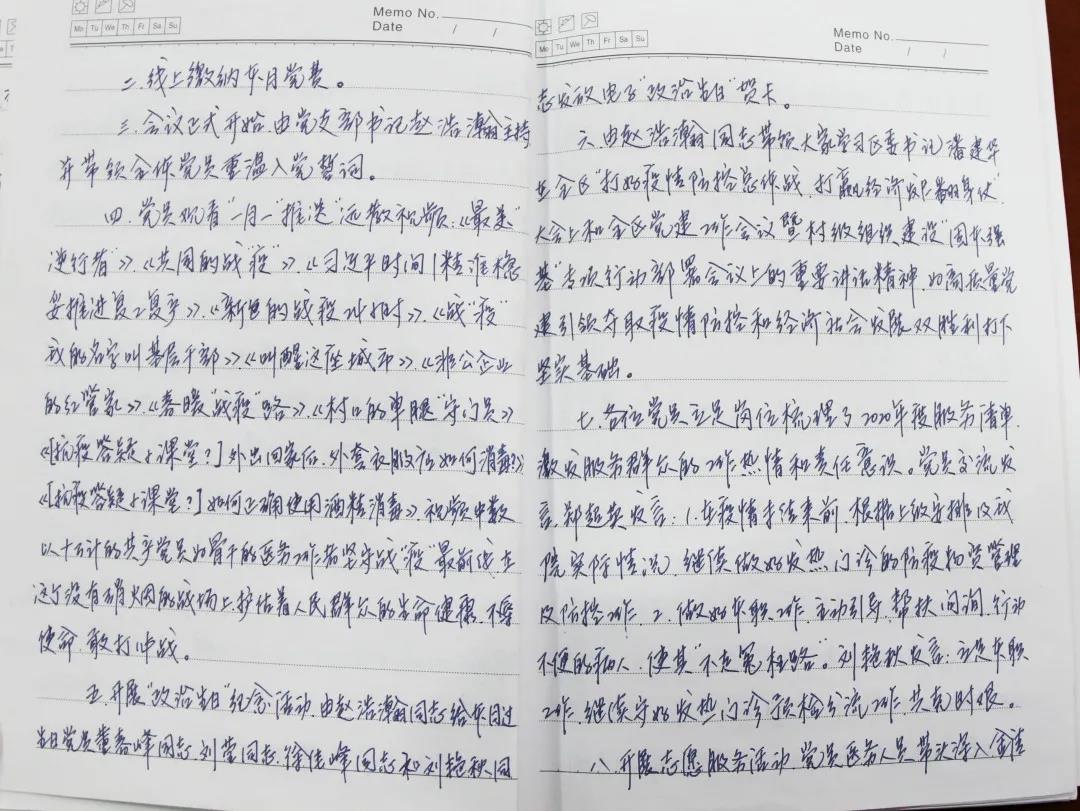 Memo No.
Date / /
Mo Tu We Th Fr Sa Su
二.线上缴纳本月党费。
三.会议正式开始.由党支部书记赵浩瀚主持
并带领全体党员重温入党誓词。
四.党员观看"一月一"推送"远教视频:《"最美"
逆行者"》.《共同的战"疫"》.《习近平时间|精准稳
妥推进复工复产》.《新色的战疫
》.《战"疫"
我的名字叫基层干部》.《叫醒这座城市》.《非公企业
的红管家》.《春暖"战疫"路》.《村口的单腿"守门员》
《[抗疫答疑小课堂?]外出回家后.外套衣服应如何消毒?》
《[抗疫答疑小课堂?]如何正确使用酒精消毒》.视频中数
以十万计的共产党员为骨干的医务工作者坚守战"疫"最前线.在
这个没有硝烟的战场上.护佑着人民群众的生命健康.不辱
使命.敢打必战。
五.开展"政治生日"纪念活动.由赵浩瀚同志给本月过
生日党员董春峰同志.刘莹同志.徐佳峰同志和刘艳秋同
Memo No.
Date / /
Mo Tu We Th Fr Sa Su
志发放电子"政治生日"贺卡。
六.由赵浩瀚同志带领大家学习区委书记潘建华
在全区"打好疫情防控总体战.打赢经济发展翻身仗"
大会上和全区党建工作会议暨村级组织建设"固本强
基"专项行动部署会议上的重要讲话精神.为高质量党
建引领夺取疫情防控和经济社会发展双胜利打下
坚实基础。
七.各位党员立足岗位梳理了2020年度服务清单.
激发服务群众的工作热情和责任意识。党员交流发
言.郑超英发言:1.在疫情未结束前.根据上级安排及我
院实际情况.继续做好发热门诊的防疫物资管理
及防控工作.2.做好本职工作.主动引导.帮扶问询.行动
不便的病人.使其"不走冤枉路"。刘艳秋发言:立足本职
工作.继续守好发热门诊预检分流工作.共克时艰。
八.开展志愿服务活动.党员医务人员带头深入